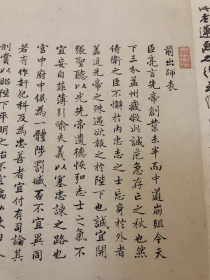 前出師表
臣亮言先帝創業未半而中道崩殂今天
下三分益州疲敝此誠危急存亡之秋也然
侍衛之臣不懈於內忠志之士忘身於外者
蓋追先帝之殊遇欲報之於陛下也誠宜開
張聖聽以光先帝遺德恢志士之氣不
宜妄自菲薄引喻失義以塞忠諫之路也
宮中府中俱為一體陟罰臧否不宜異同
若有作奸犯科及為忠善者宜付有司論其
刑賞以昭陛下平明之治不宜